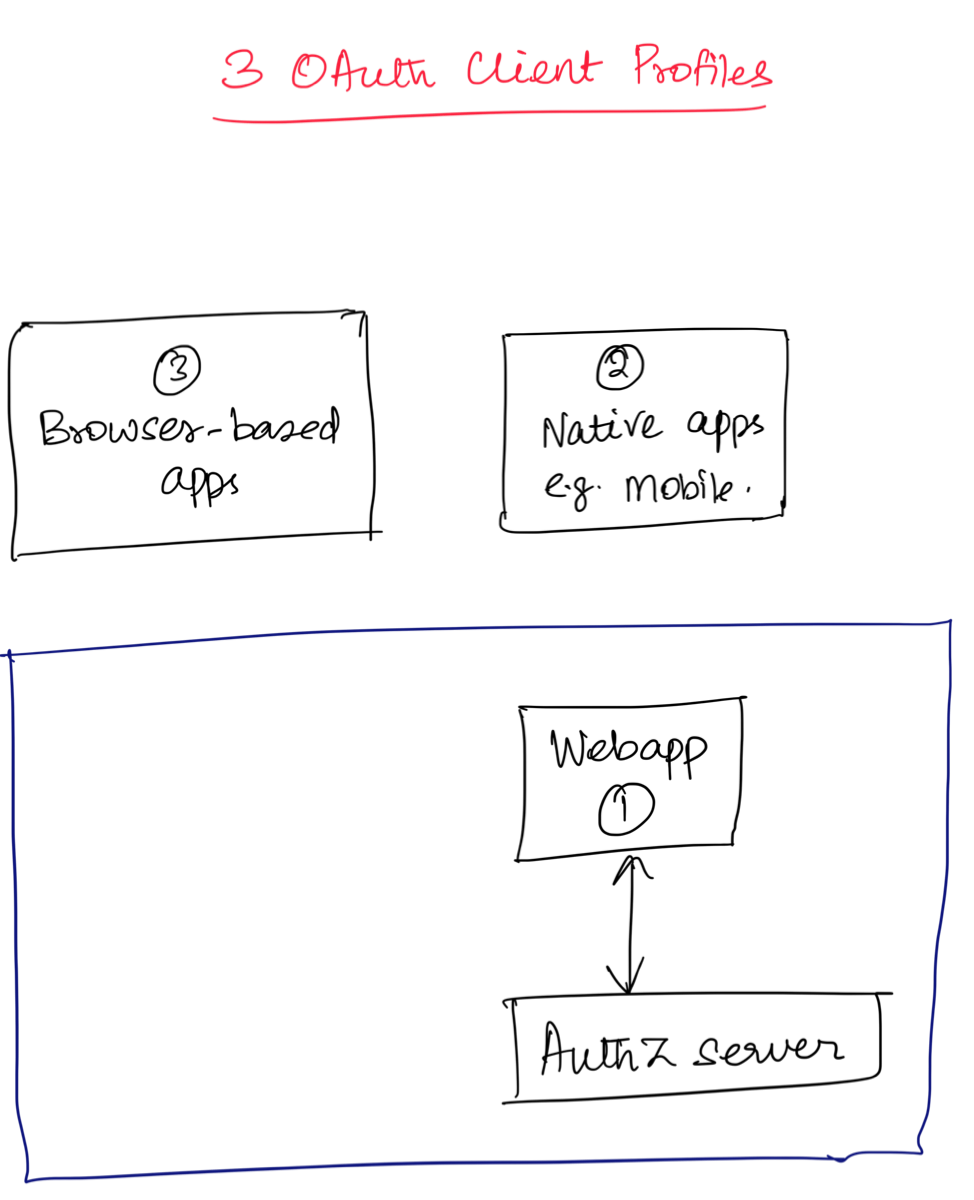 3 OAuth Client Profiles
3
Browser-based
apps
2
Native apps
e.g. mobile.
Webapp
1
AuthZ server